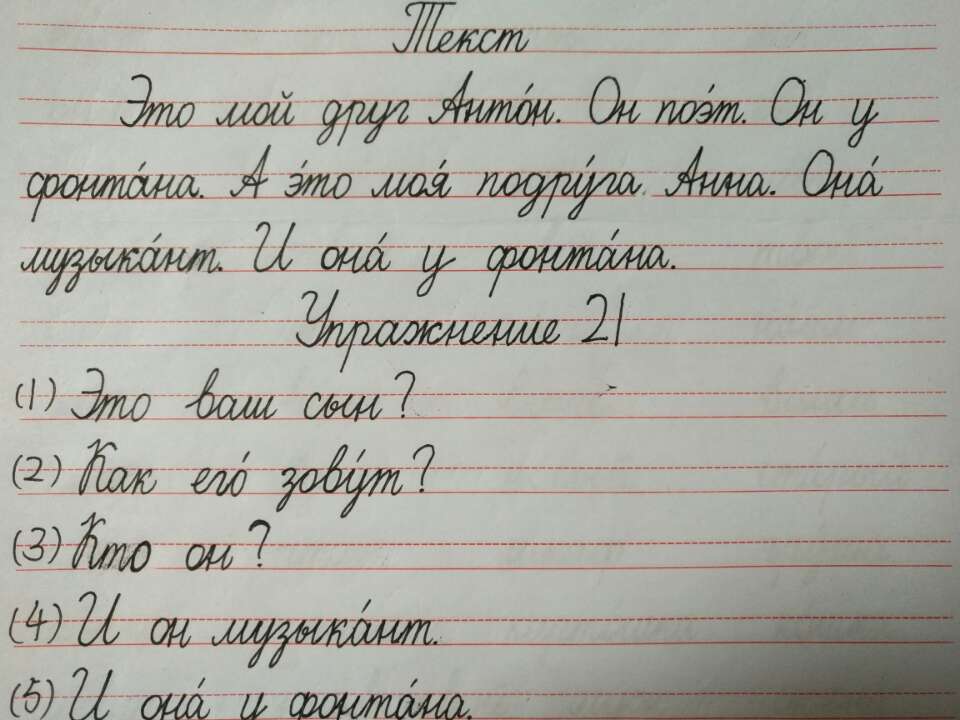 Текст
Это мой друг Анто́н. Он поэ́т. Он у
фонта́на. А э́то моя́ подру́га Анна. Она́
музыка́нт. И она́ у фонта́на.
Упражнение 21
(1) Это ваш сын?
(2) Как его́ зову́т?
(3) Кто он?
(4) И он музыка́нт.
(5) И она́ у фонта́на.